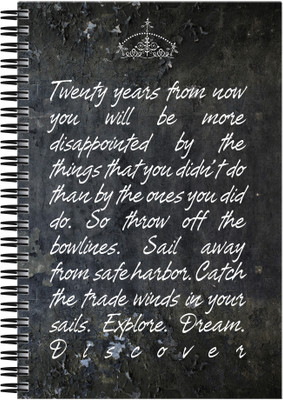 Twenty years from now
you will be more
disappointed by the
things that you didn't do
than by the ones you did
do. So throw off the
bowlines. Sail away
from safe harbor. Catch
the trade winds in your
sails. Explore. Dream.
Discover